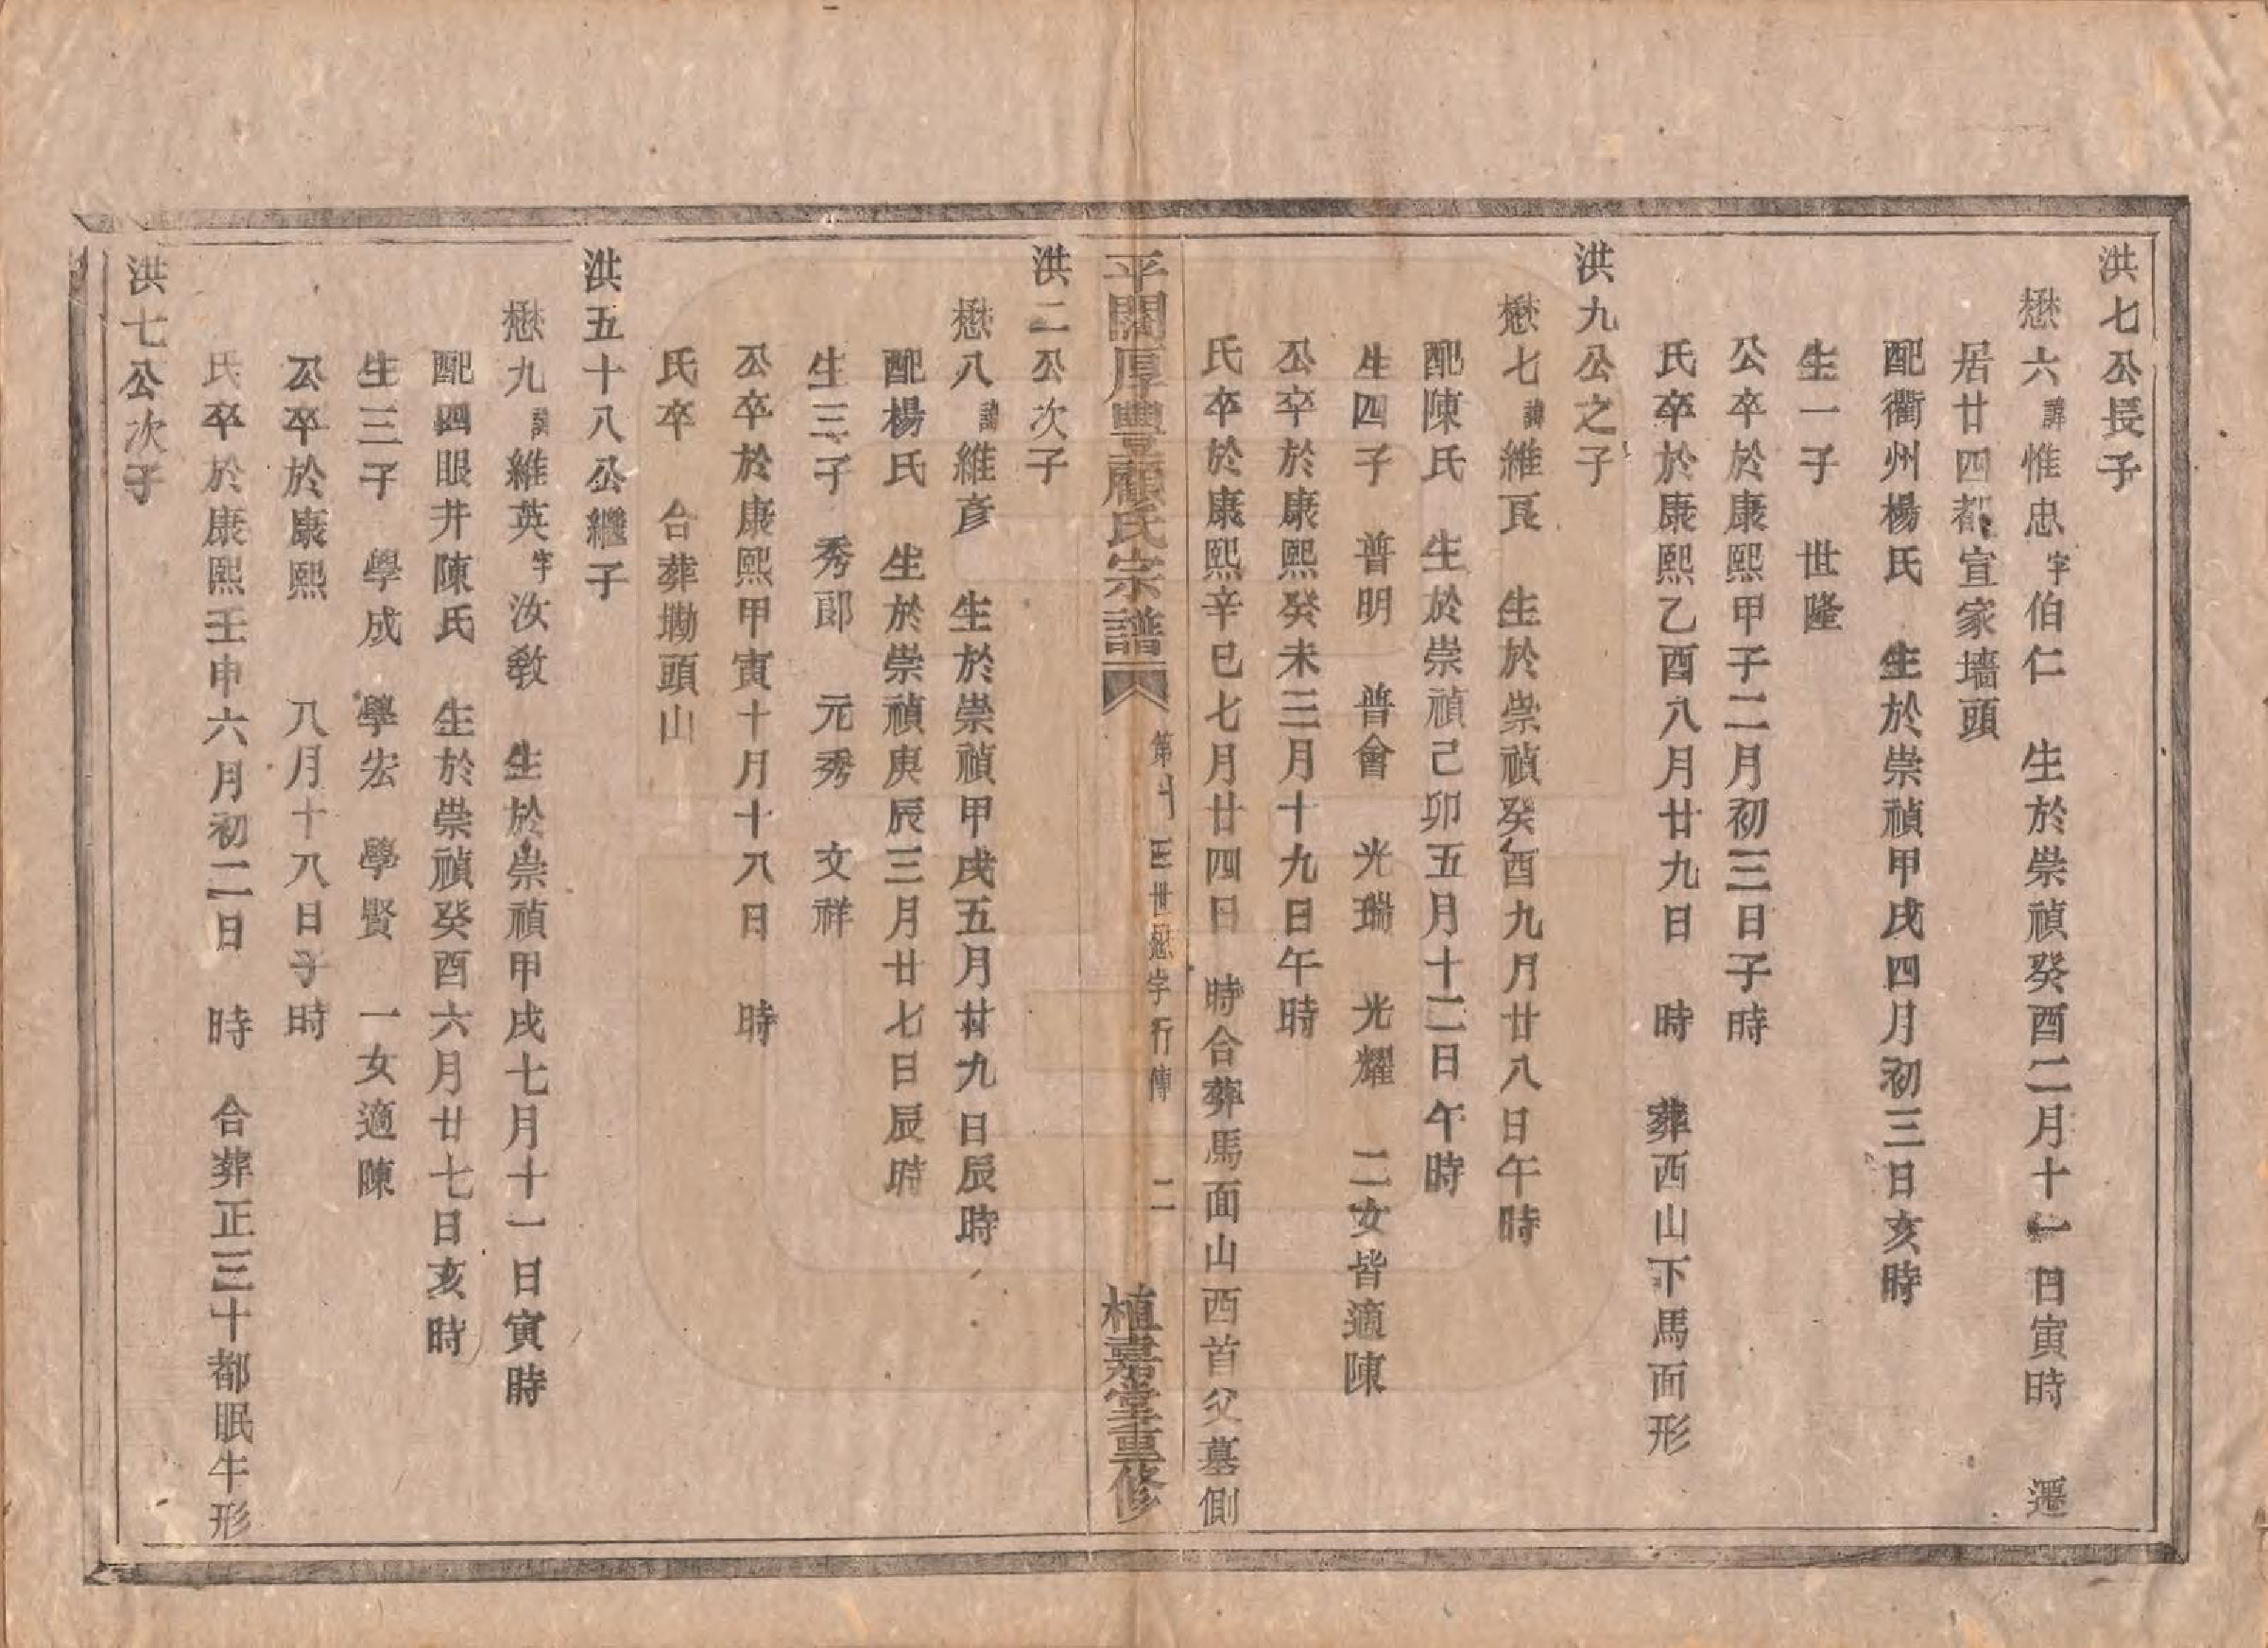 洪七公長子
懋六諱惟忠字伯仁　生於崇禎癸酉二月十一日寅時　遷
居廿四都宣家墻頭
配衢州楊氏　生於崇禎甲戌四月初三日亥時
生一子　世隆
公卒於康熙甲子二月初三日子時
氏卒於康熙乙酉八月廿九日　時　葬西山下馬面形
洪九公之子
懋七諱維良　生於崇禎癸酉九月廿八日午時
配陳氏　生於崇禎己卯五月十二日午時
生四子　普明　普會　光瑞　光耀　二女皆適陳
公卒於康熙癸未三月十九日午時
氏卒於康熙辛巳七月廿四日　時合葬馬面山西首父墓側
平闊厚豐顧氏宗譜
第　世懋字行傳　二
植嘉堂重修
洪二公次子
懋八諱維彦　生於崇禎甲戌五月廿九日辰時
配楊氏　生於崇禎庚辰三月廿七日辰時
生三子　秀郎　元秀　文祥
公卒於康熙甲寅十月十八日　時
氏卒　合葬坳頭山
洪五十八公繼子
懋九諱維英字汝敎　生於崇禎甲戌七月十一日寅時
配四眼井陳氏　生於崇禎癸酉六月廿七日亥時
生三子　學成　學宏　學賢　一女適陳
公卒於康熙　　八月十八日子時
氏卒於康熙壬申六月初二日　時　合葬正三十都眠牛形
洪七公次子